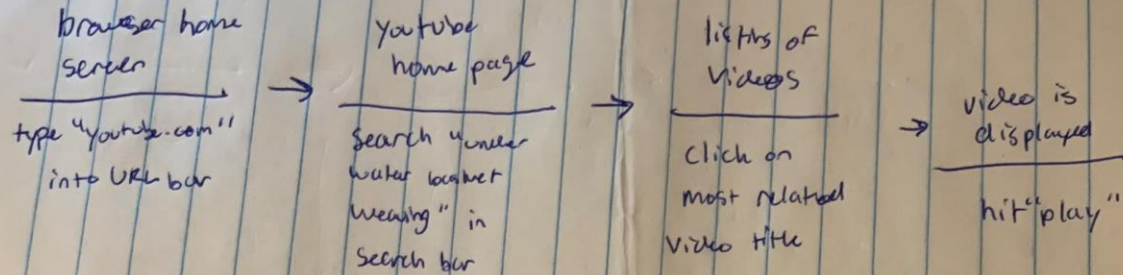 browser home
server
type "youtube.com"
into URL bar
youtube
home page
search "under
water basket
weaving" in
search bar
listings of
videos
click on
most related
video title
video is
displayed
hit "play"